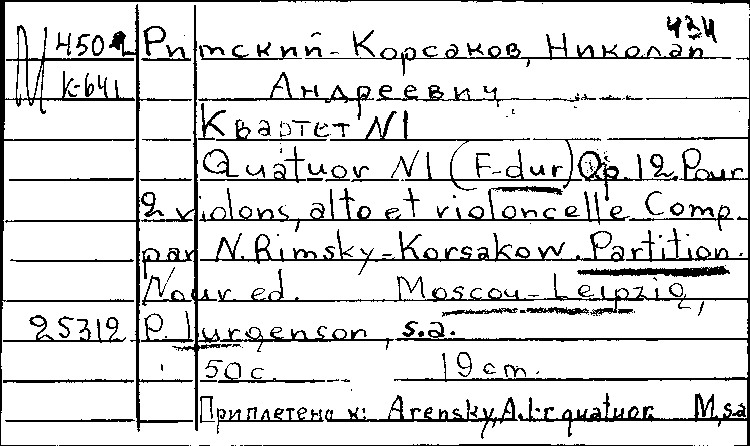 434
М 450-2 Римский-Корсаков, Николай
К-641 Андреевич
Квартет N1
Quatuor N1 (F-dur) Op. 12. Pour
2 violons, alto et violoncelle Comp.
par N. Rimsky-Korsakow. Partition.
Nouv ed. Moscou-Leipzig,
25312 P. Iurgenson, s.a.
50 c. 19 cm.
Приплетено к: Arensky, A. I-r quatuor. M, s.a